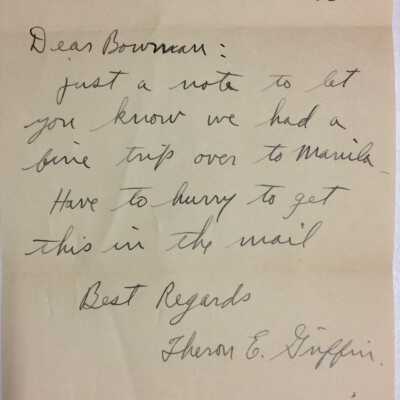 Dear Bowman:
just a note to let
you know we had a
fine trip over to Manila
Have to hurry to get
this in the mail
Best Regards
Theron E. Griffin.